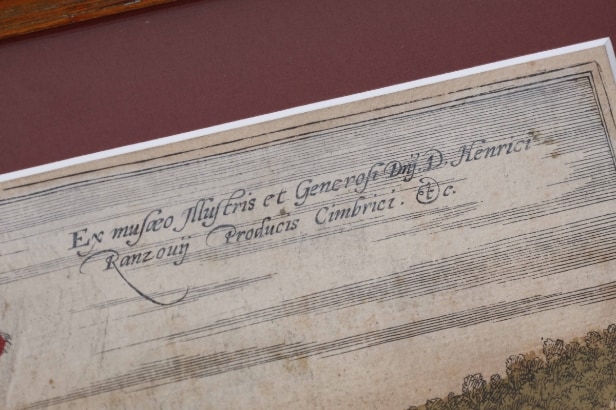 Ex musæo Jllustris et Generosi Dnij. D. Henrici
Ranzouij Producis Cimbrici. &c.